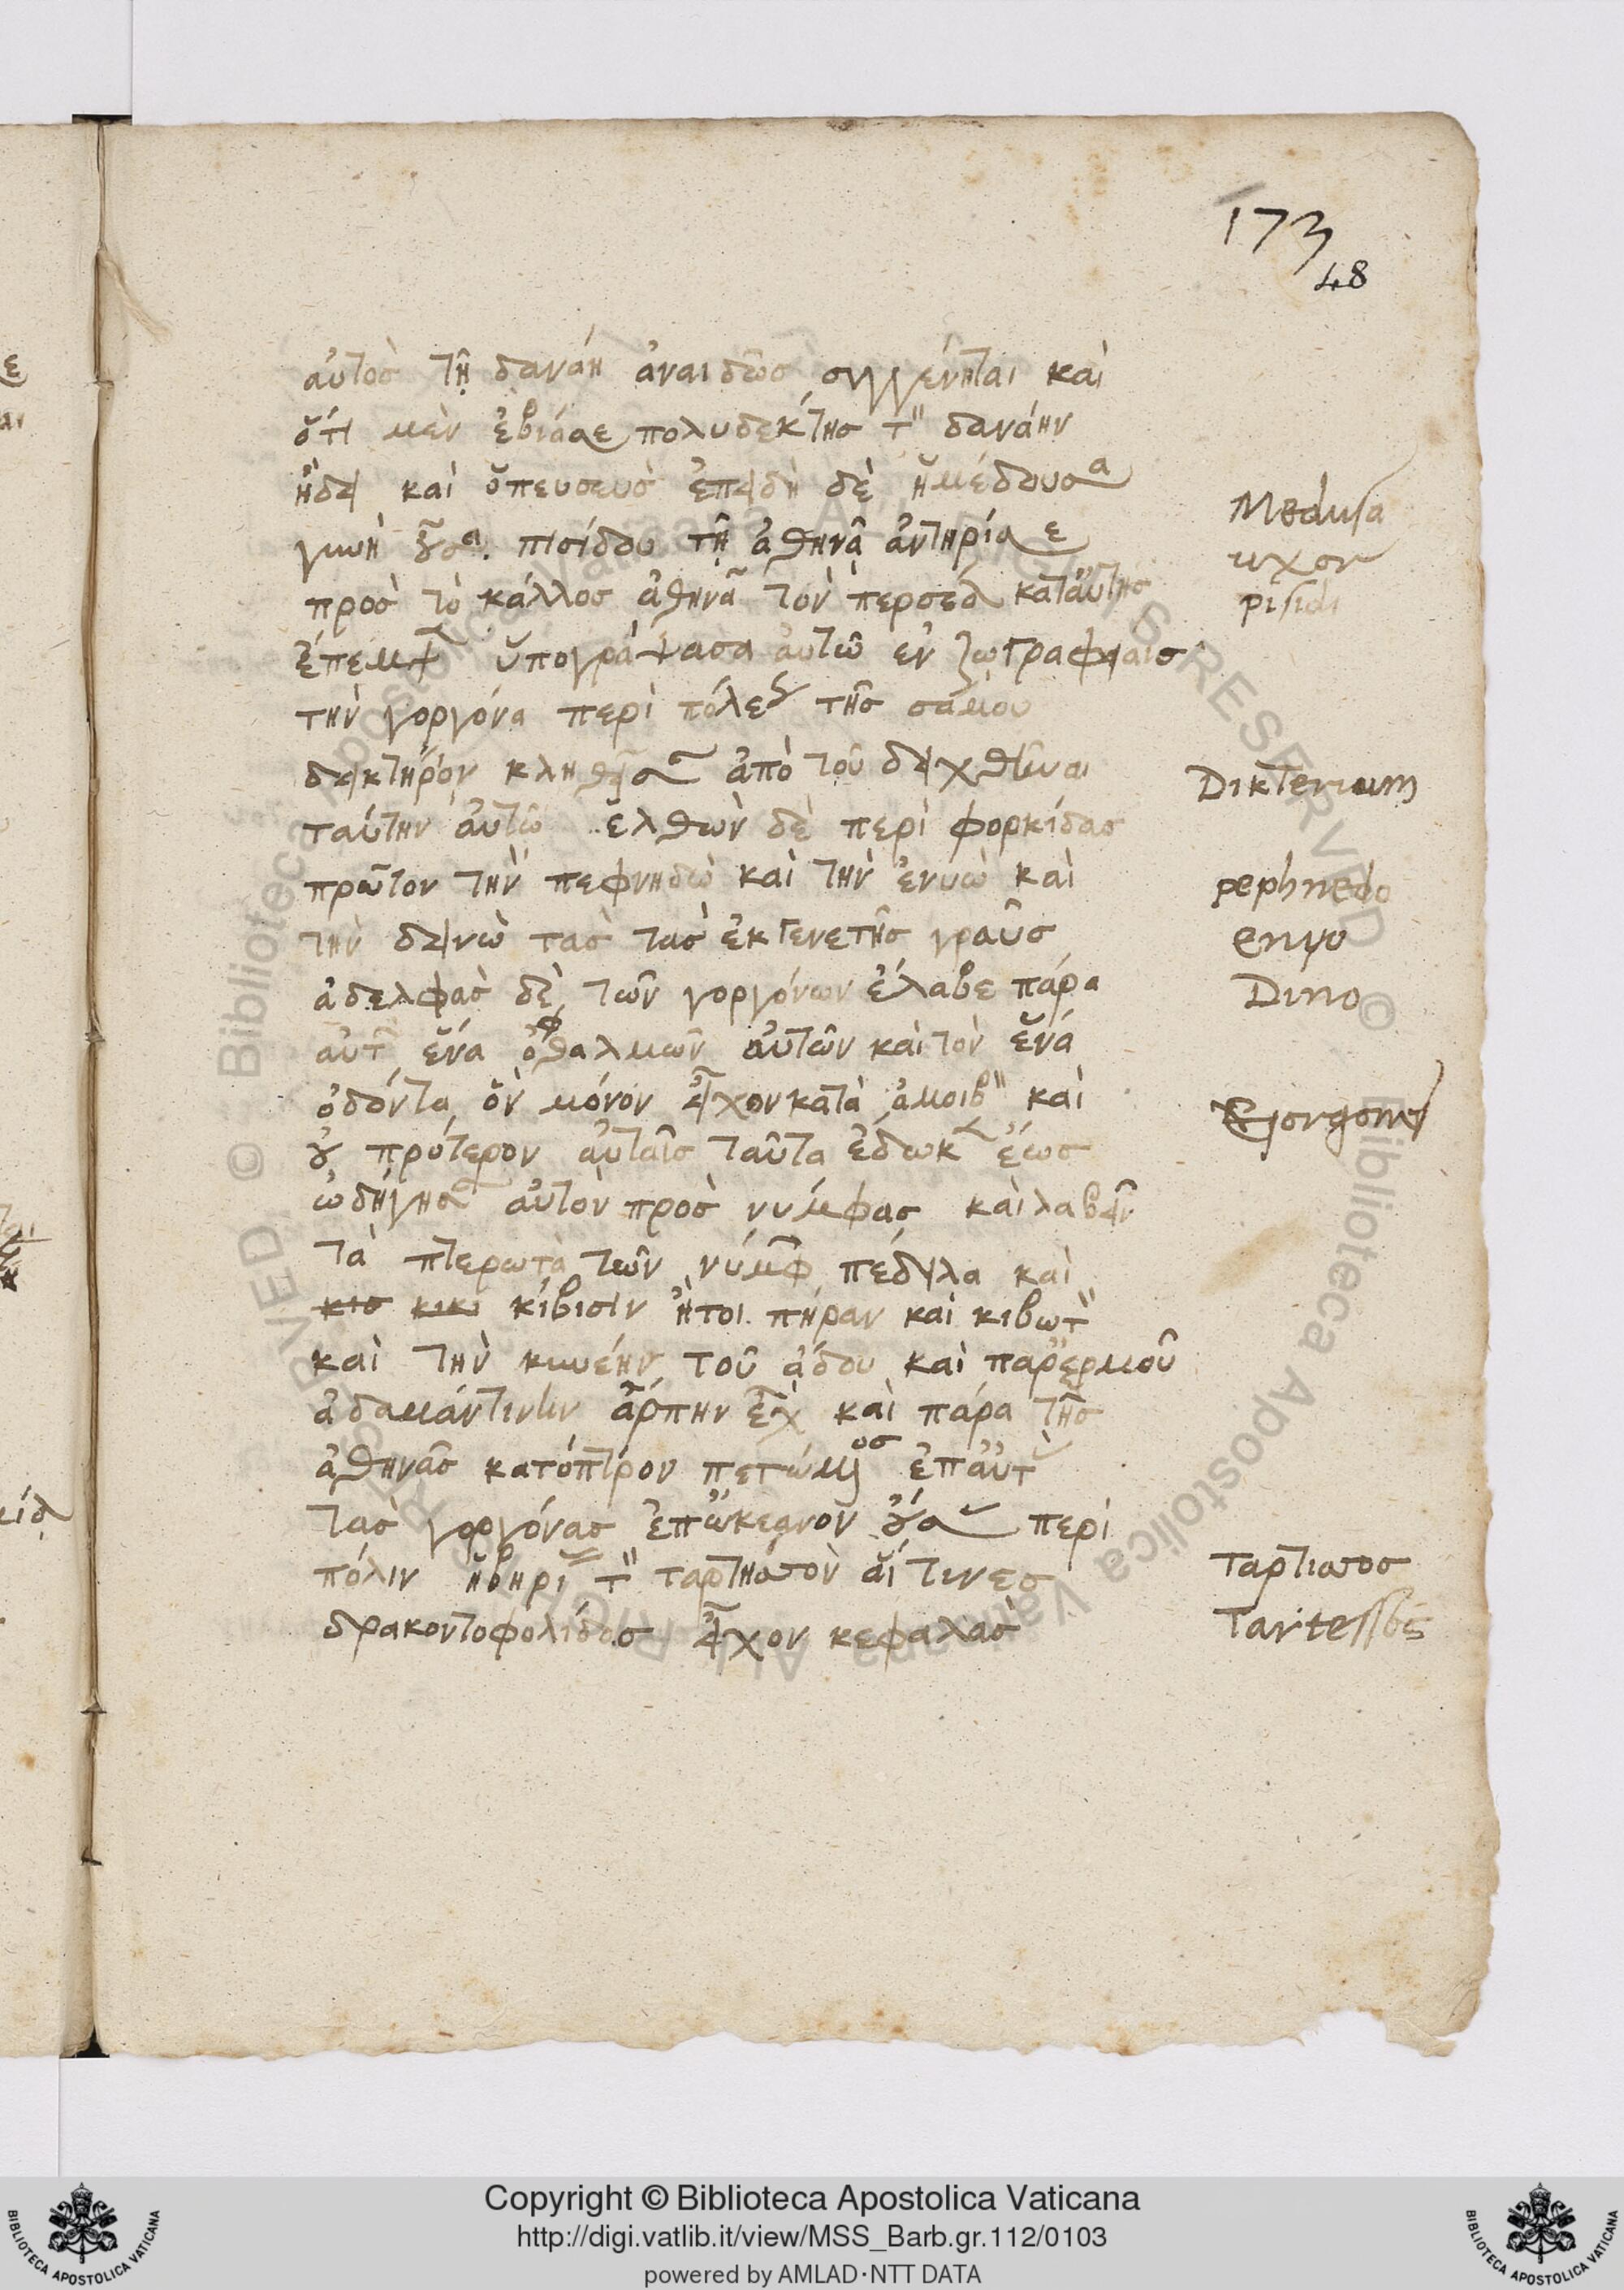 173
48
αὐτὸσ τῆ δανάη ἀναιδῶσ συγγένηται καὶ
ὅτι μὲν ἐβιάσε πολυδεκτησ τ̈ δανάην
ἤδει καὶ ὅπευσευσ ἐπειδὴ δὲ ἡμέδουσα
γυνὴ οὖσα πισίδου τῆ ἀθηνᾶ ἀντηρίσε
προσ τὸ κάλλοσ ἀθηνᾶ τὸν περσέα κατἀυτησ
ἔπεμψε ὑπογράψασα ἀυτῶ εν ζωγραφειαισ
τὴν γοργόνα περὶ πόλεως τῆσ σάμου
δεικτηρον κληθεῖσαν ἀπὸ τοῦ δειχθῆναι
ταύτην ἀυτῶ ἐλθὼν δὲ περὶ φορκίδασ
πρῶτον τὴν πεφνηδὼ καὶ τὴν ἐνυὼ καὶ
τὴν δεινὼ τασ τασ ἐκγενετῆσ γραῦσ
ἀδελφασ δὲ τῶν γοργόνων ἐλαβε πάρα
αὐτῶν ἕνα ὀφθαλμῶν ἀυτῶν καὶ τὸν ἕνα
ὀδόντα ὅν μόνον εἶχον κατὰ ἀμοιβ̈ καὶ
οὐ πρότερον ἀυταῖσ ταῦτα ἐδωκεν ἕωσ
ὡδήγησαν αὐτὸν πρὸσ νυμφασ καὶ λαβεῖν
τὰ πτερωτὰ τῶν νύμφῶν πέδιλα καὶ
κισ κικι κίβισιν ἤτοι πήραν καὶ κιβωτ̈
καὶ τὴν κυνέην τοῦ ἀδου καὶ παρἑρμοῦ
ἀδαμάντινην ἅρπην εἶχε καὶ πάρα τῆσ
ἀθηνᾶσ κατόπτρον πετώμενοσ ἐπἀυτ
τασ γοργόνασ ἐπὠκεανον οὔσασ περὶ
πόλιν ἠβηρίασ τ̈ ταρτησσον αἵτινεσ
δρακοντοφολίδασ εἶχον κεφαλασ
Medusa
uxor
pisidi
Dikterium
pephnedo
enyo
Dino
Gorgones
Ταρτισσοσ
Tartessos
Copyright © Biblioteca Apostolica Vaticana
http://digi.vatlib.it/view/MSS_Barb.gr.112/0103
powered by AMLAD·NTT DATA
BIBLIOTECA APOSTOLICA VATICANA
BIBLIOTECA APOSTOLICA VATICANA